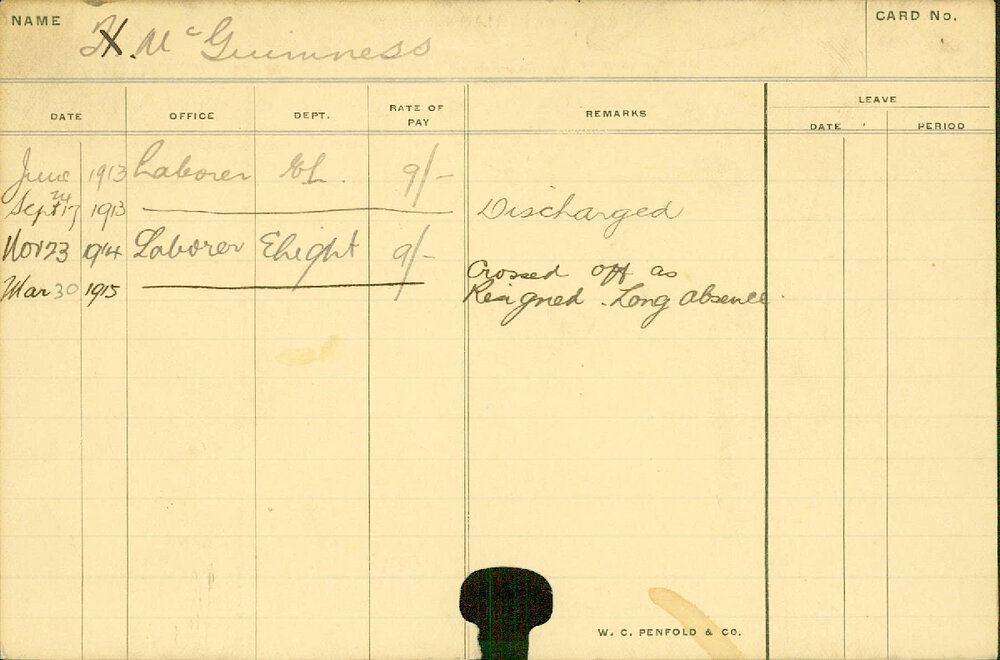 NAME H. McGuinness CARD No.
DATE OFFICE DEPT. RATE OF PAY REMARKS LEAVE
DATE PERIOD
June 1913 Laborer EL. 9/-
Sept 17 24 1913 Discharged
Nov 23 1914 Laborer Elight 9/-
Mar 30 1915 Crossed off as
Resigned. Long absence
W. C. PENFOLD & CO.